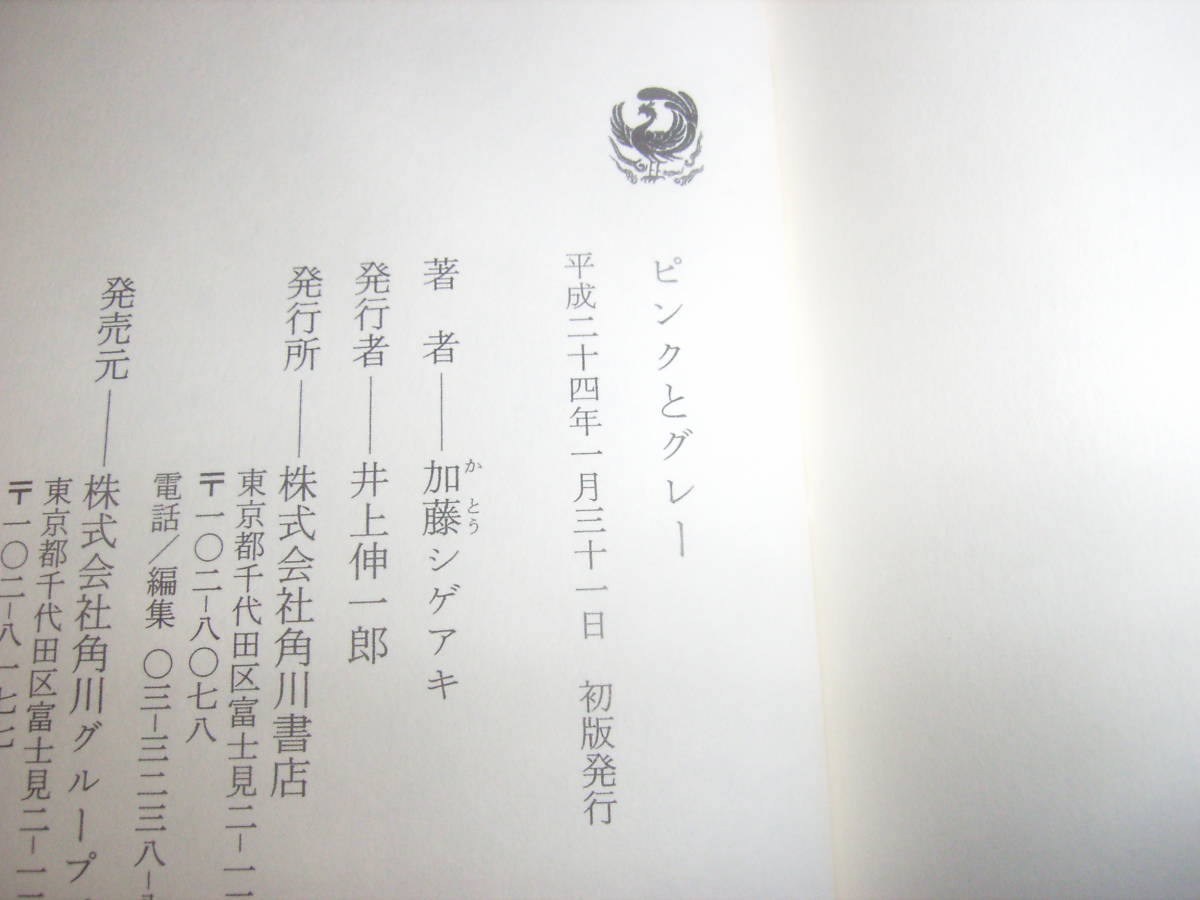 ピンクとグレー
平成二十四年一月三十一日　初版発行
著　者――加藤シゲアキ
かとう
発行者――井上伸一郎
発行所――株式会社角川書店
東京都千代田区富士見二-一
〒一〇二-八〇七八
電話/編集 〇三-三二三八-
発売元――株式会社角川グループ
東京都千代田区富士見二-一
〒一〇二-八一七七